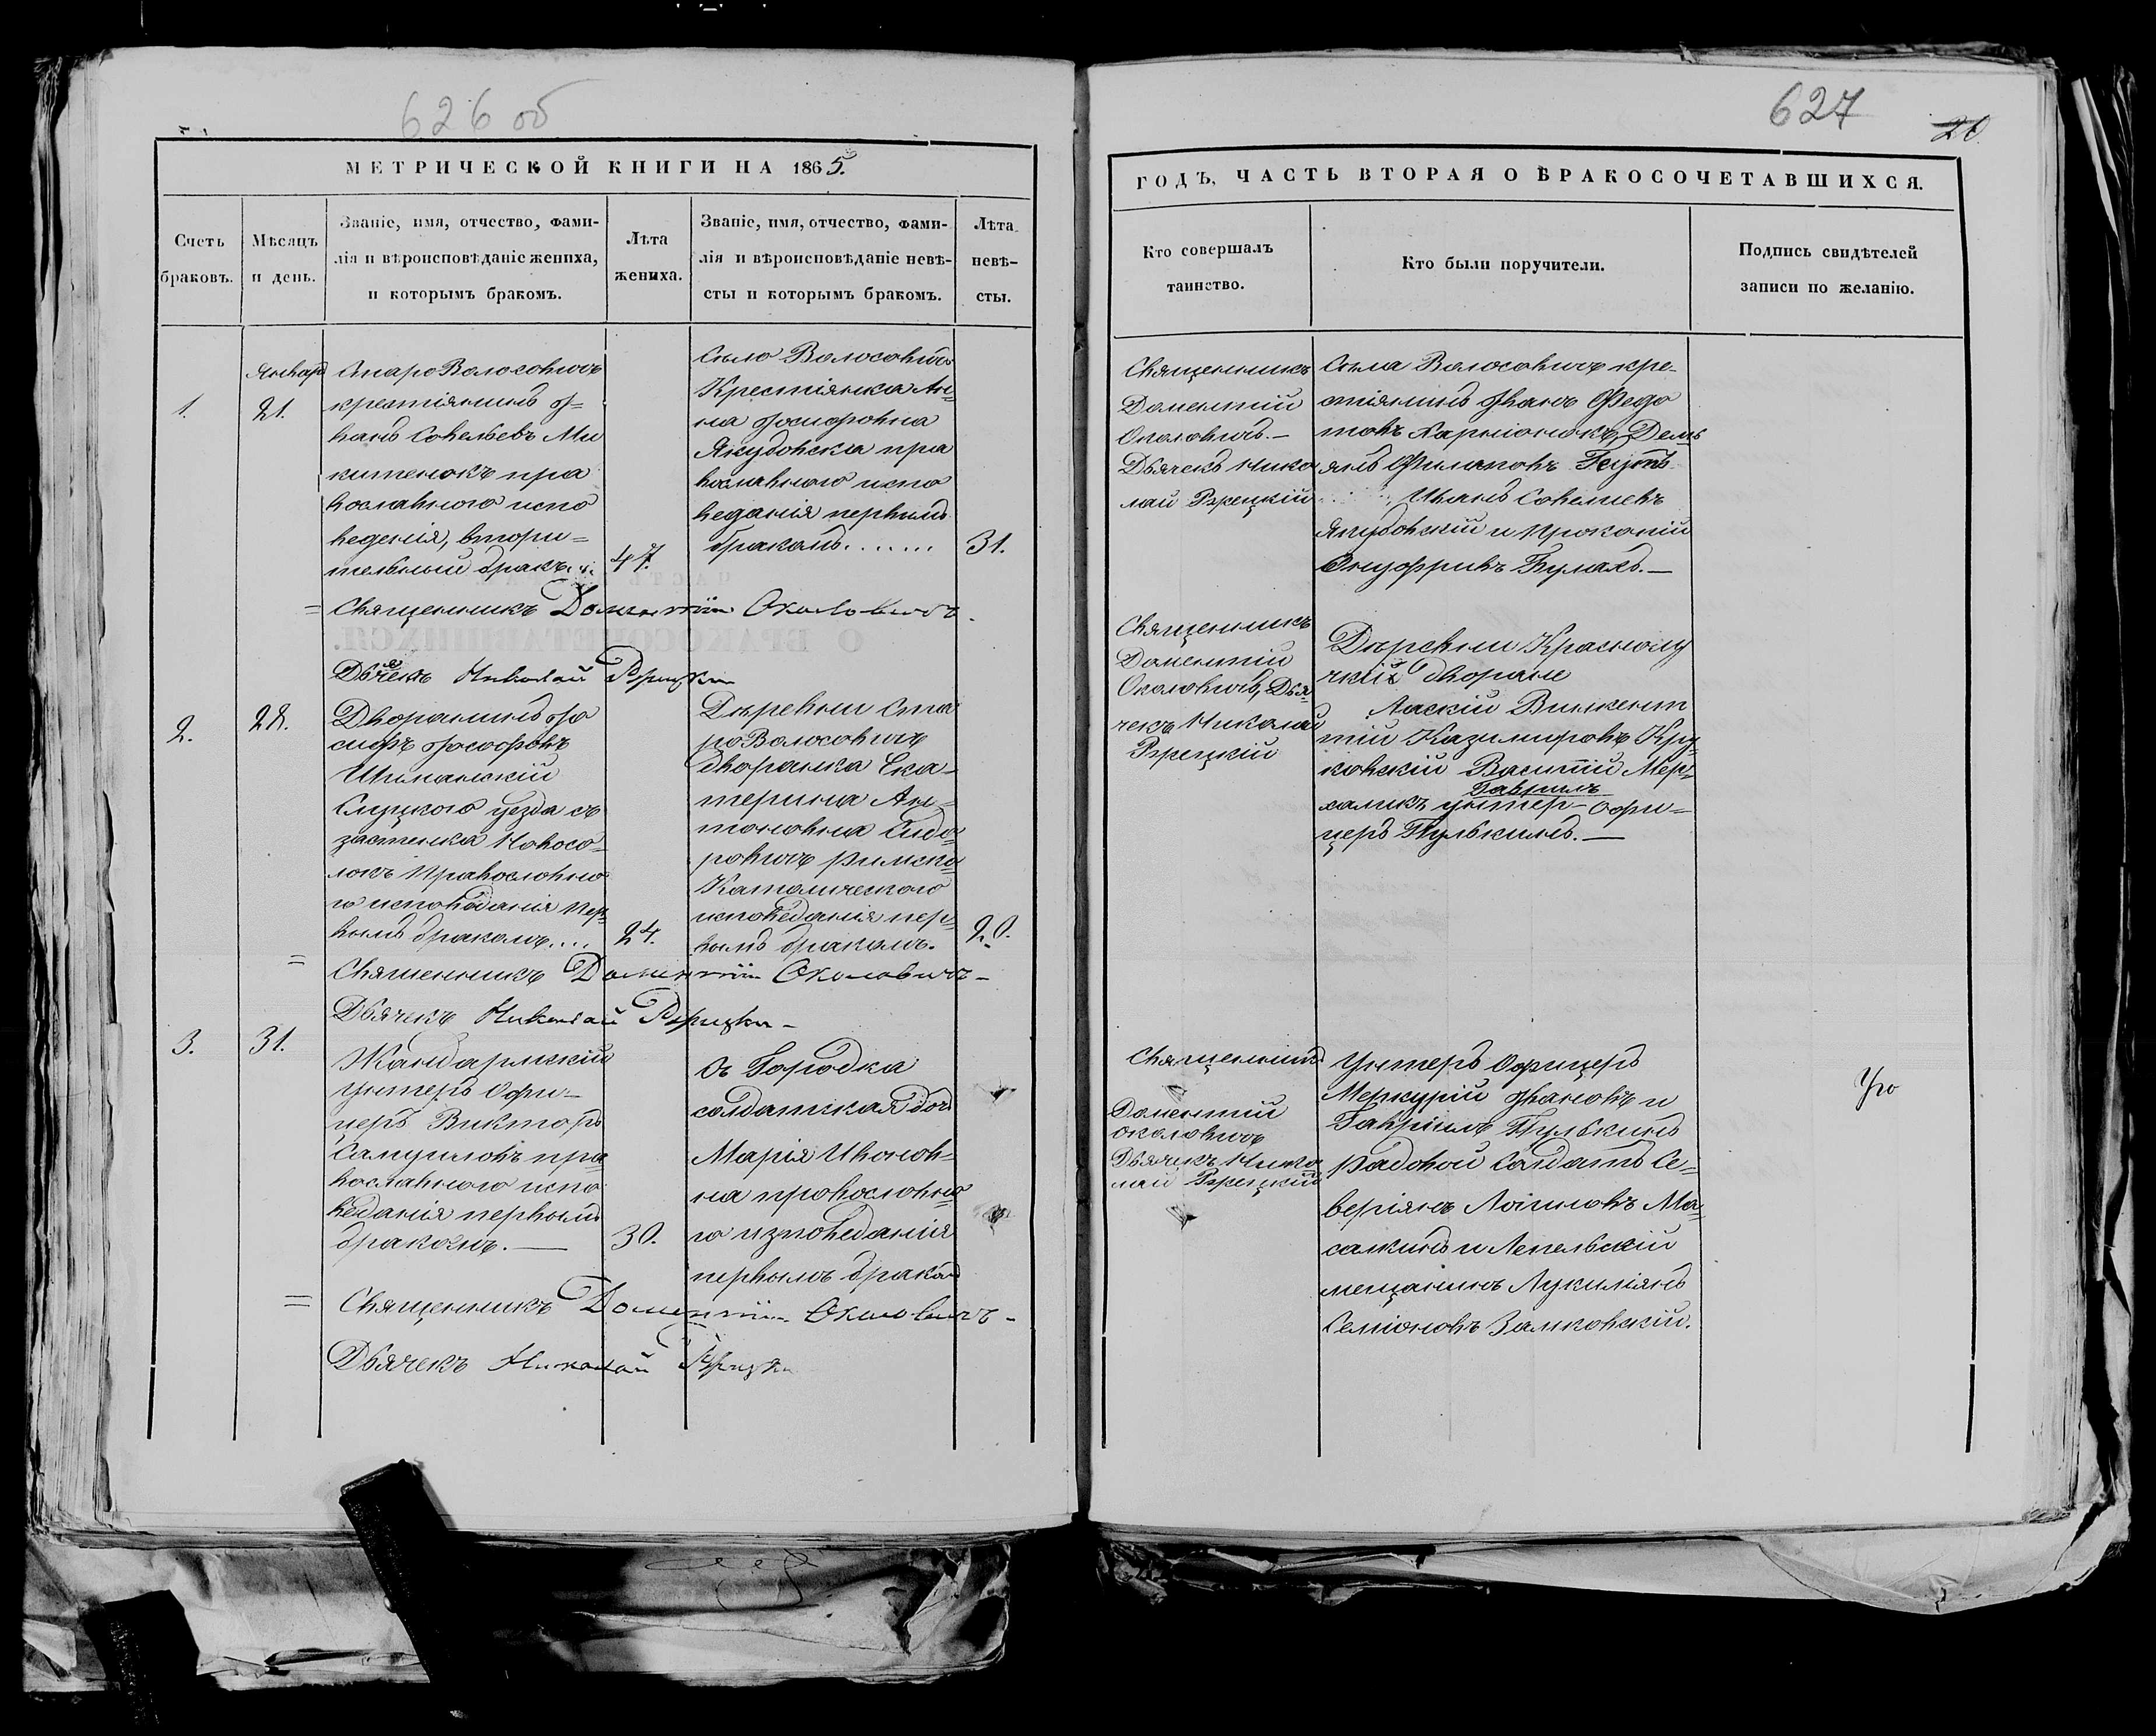 626 об
МЕТРИЧЕСКОЙ КНИГИ НА 1865.
Счетъ
браковъ.
Мѣсяцъ
и день.
Званіе, имя, отчество, фами-
лія и вѣроисповѣданіе жениха,
и которымъ бракомъ.
Лѣта
жениха.
Званіе, имя, отчество, фами-
лія и вѣроисповѣданіе невѣ-
сты и которымъ бракомъ.
Лѣта
невѣ-
сты.
1.
Январ
21.
Старо Волосовичъ
крестіянинъ И=
ванъ Совельевъ Ми
китенокъ пра
вославного испо
веденія, втори=
тельный бракъ
47.
Сѣло Волосовичъ
Крестіянка Ан=
на Іосифовна
Якубовска пра
вославного испо
веданія первымъ
бракомъ.......
31.
= Священникъ Доментій Околовичъ.
Дьячекъ Николай
2.
28.
Дворанинъ Іо
сифъ Іософовъ
Слуцкого уезда съ
застенка Новосо-
локъ Православно
го исповеданія пер=
вымъ бракомъ....
24.
Деревни Ста
ро Волосовичъ
дворанка Ека-
терина Ан=
тоновна Сидо
ровичъ Римско
Католического
исповеданія пер=
вымъ бракомъ.
20.
= Священникъ Доментій Околовичъ-
Дьячекъ Николай
3.
31.
Жандармскій
Унтеръ Офи-
церъ Викторъ
Самуиловъ пра=
вославного испо
веданія первымъ
бракомъ.—
30.
Съ Городка
солдатская дочь
Марія Ивонов=
на провословно
го изповеданія
первымъ бракомъ
= Священникъ Доментій Околовичъ-
Дьячекъ Николай
627
20.
ГОДЪ, ЧАСТЬ ВТОРАЯ О БРАКОСОЧЕТАВШИХСЯ.
Кто совершалъ
таинство.
Кто были поручители.
Подпись свидѣтелей
записи по желанію.
Священникъ
Доментій
Околовичъ.-
Дьячекъ Нико
лай
Сѣла Волосовичъ кре-
стіянинъ Иванъ Федо
товъ Харитонокъ, Демь
янъ Филиповъ
Иванъ Совелиевъ
Якубовскій и Прокопій
Онуфріевъ Булахъ.—
Священникъ
Доментій
Околовичъ, Дья
чекъ Николай
Деревни Краснолу
чки дворане
Ласкій Викент
тій Казимировъ Кру-
ковскій Василій Мер=
Гаврилъ
халикъ унтер-Офи=
церъ Пулькинъ.—
Священникъ
Доментій
околовичъ
Дьячекъ Нико
лай
Унтеръ Офицеръ
Меркурій Ивановъ и
Гавріилъ Пулькинъ
Радовой Солдатъ Се=
веріянъ Логиновъ Мо=
салкинъ и Лепельскій
мещанинъ Лукиліянъ
Семіоновъ Замковскій.